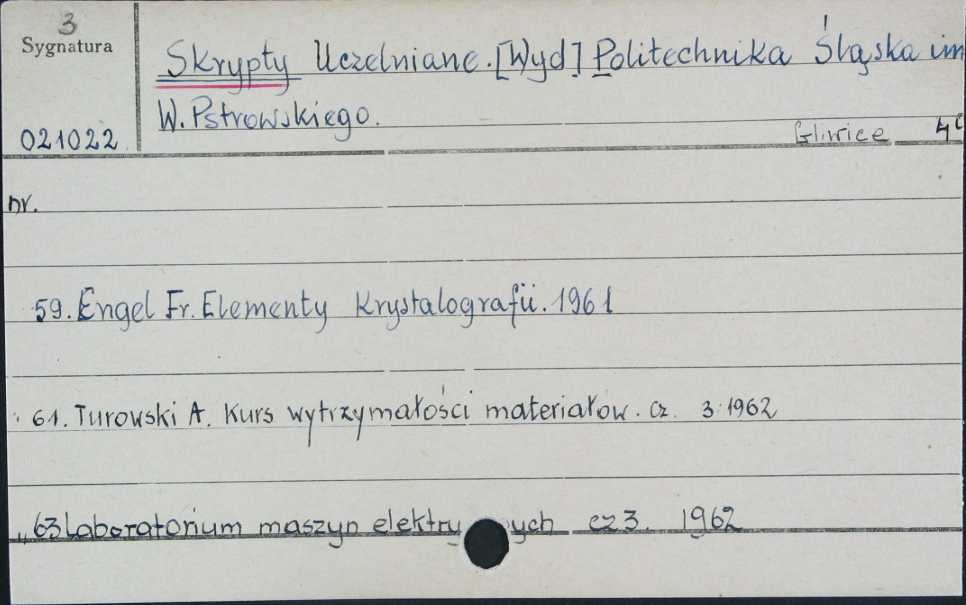 3
Sygnatura
Skrypty Uczelniane. [Wyd] Politechnika Śląska im
W. Pstrowskiego.
021022
Gliwice 4°
nr.
59. Engel Fr. Elementy Krystalografii. 1961
61. Turowski A. Kurs wytrzymałości materiałow. cz. 3. 1962
„ 63 Laboratorium maszyn elektry ych cz 3. 1962